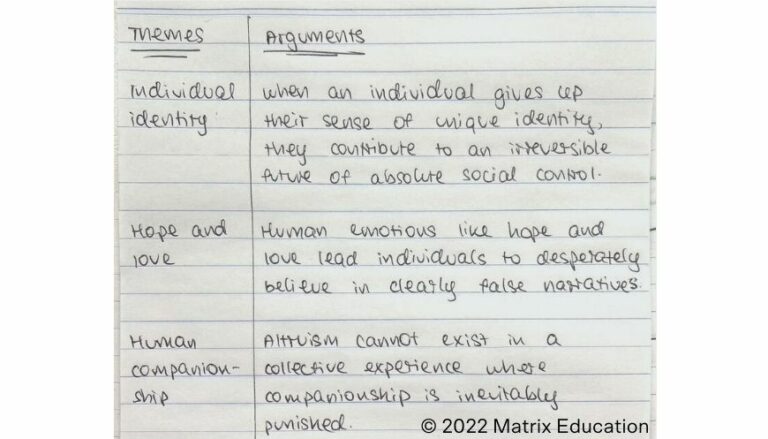 Themes Arguments
Individual when an individual gives up
identity their sense of unique identity,
they contribute to an irreversible
future of absolute social control.
Hope and Human emotions like hope and
love love lead individuals to desperately
believe in clearly false narratives.
Human Altruism cannot exist in a
companion- collective experience where
ship companionship is inevitably
punished.
© 2022 Matrix Education